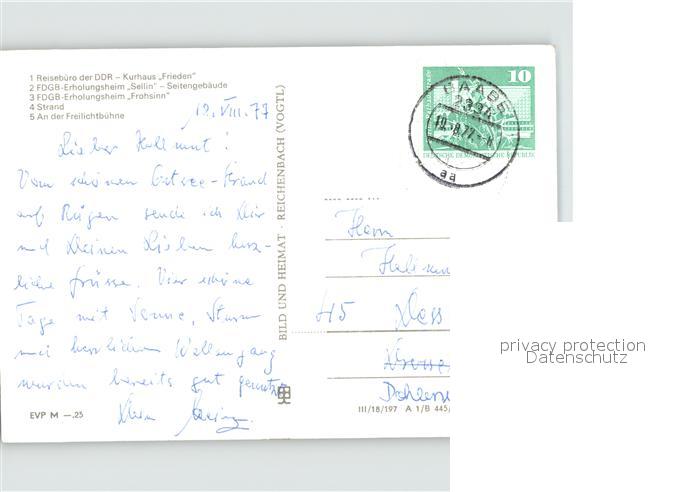 1 Reisebüro der DDR – Kurhaus „Frieden"
2 FDGB-Erholungsheim „Sellin" – Seitengebäude
3 FDGB-Erholungsheim „Frohsinn"
4 Strand
5 An der Freilichtbühne
12. VIII. 77
Lieber Hellmut!
Vom schönen Ostsee-Strand
auf Rügen sende ich Dir
und Deinen Lieben herz-
liche Grüsse. Vier schöne
Tage mit Sonne, Sturm
und herrlichen Wellengang
wurden bereits gut genutzt
Dein
EVP M —.25
BILD UND HEIMAT · REICHENBACH (VOGTL)
10
DEUTSCHE DEMOKRATISCHE REPUBLIK
BAABE
2334
8.77
aa
Herrn
45 Dess
III/18/197 A 1/B 445/
privacy protection
Datenschutz